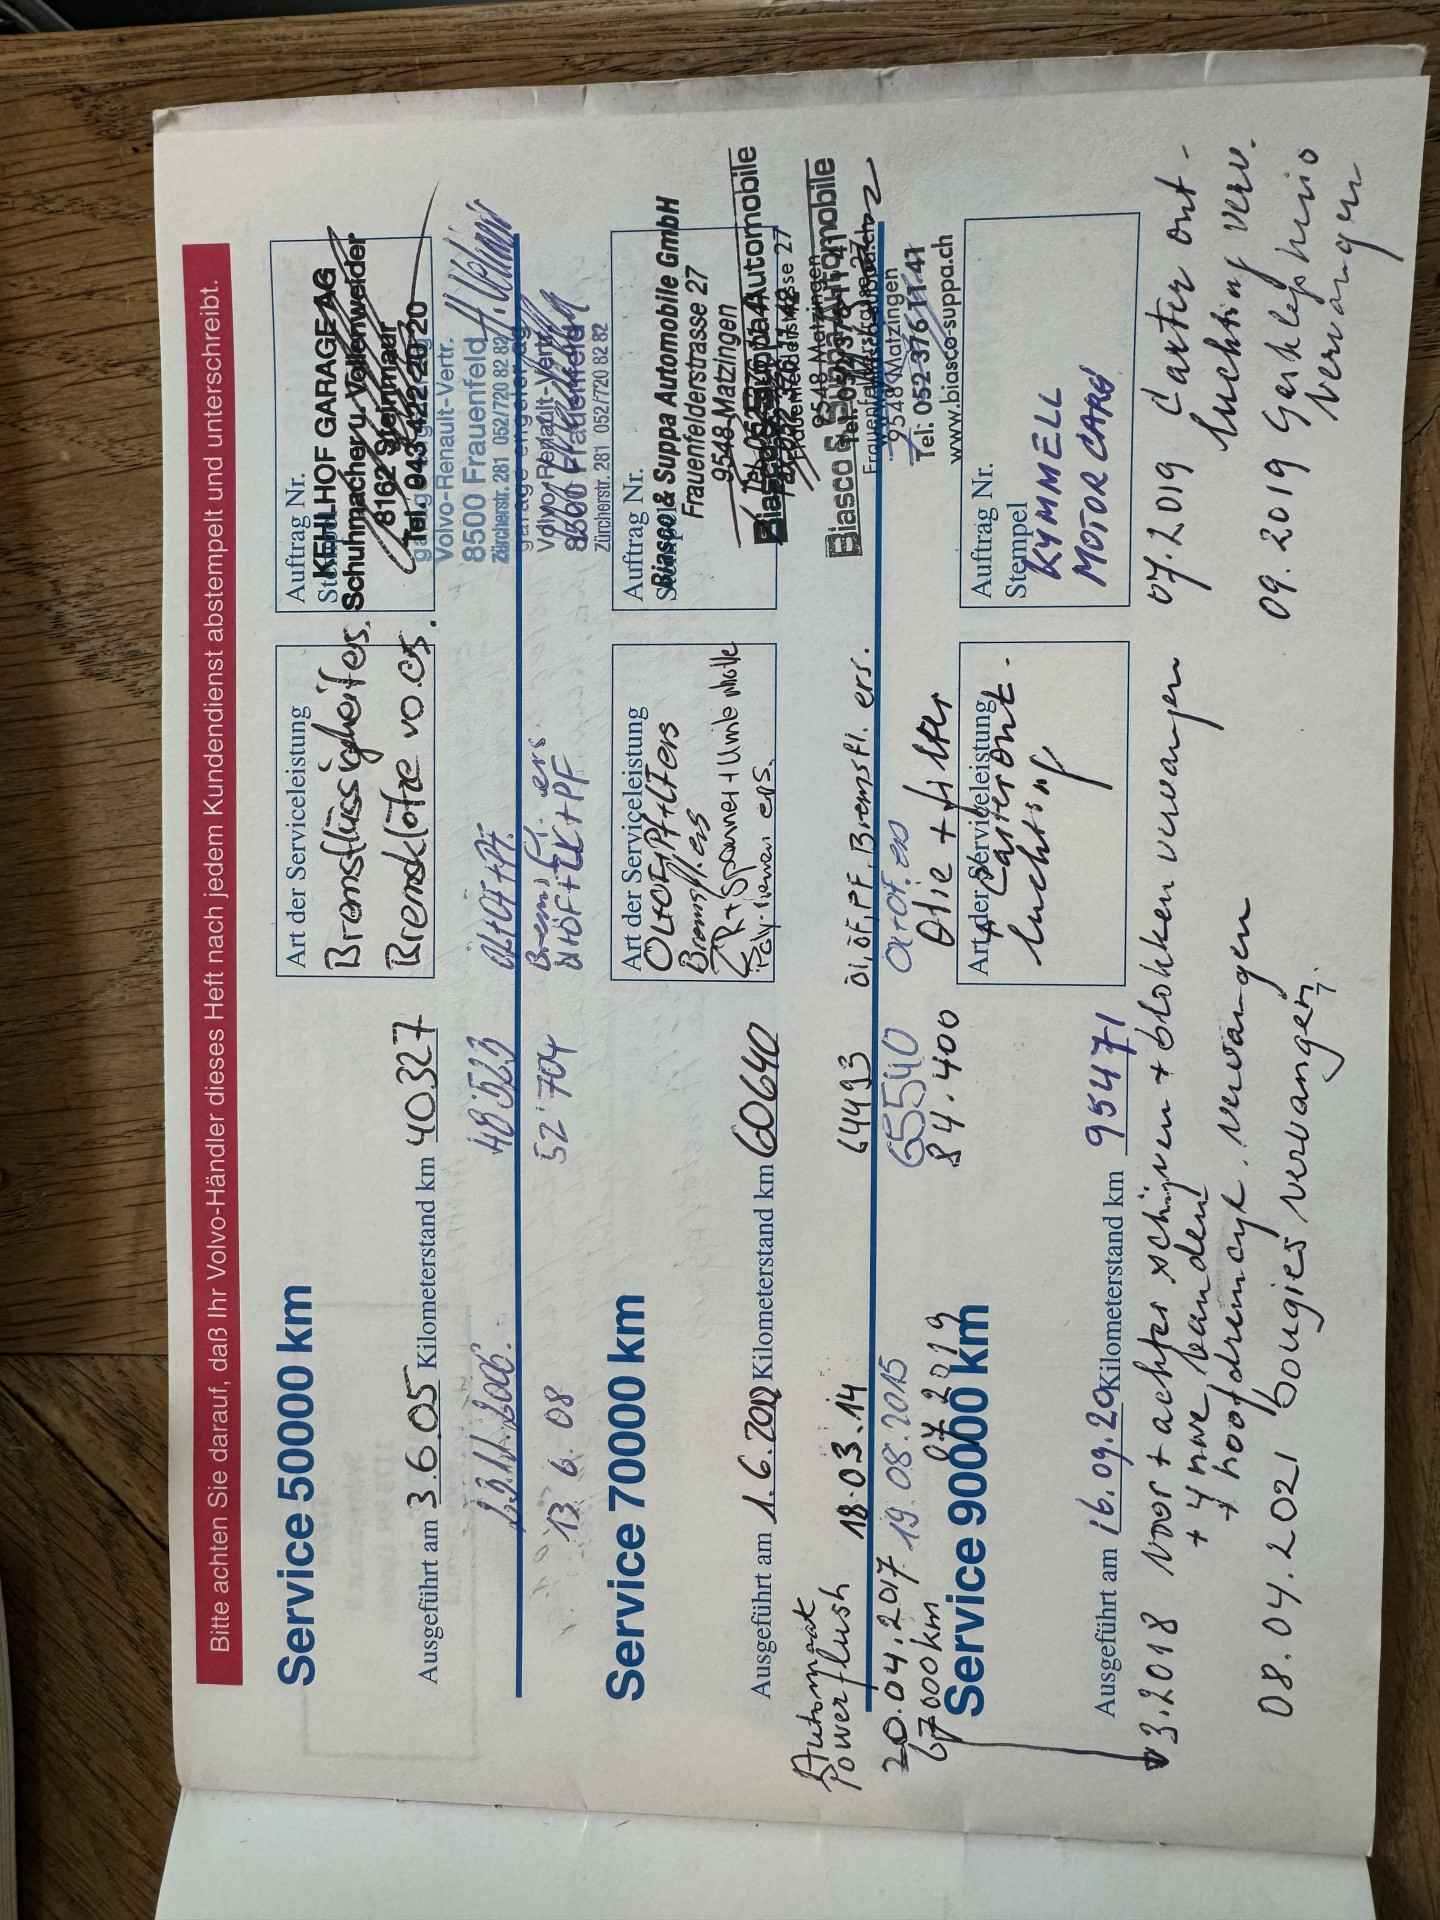 Bitte achten Sie darauf, daß Ihr Volvo-Händler dieses Heft nach jedem Kundendienst abstempelt und unterschreibt.
Service 50000 km
Art der Serviceleistung
Auftrag Nr.
KEHLHOF GARAGE AG
Schuhmacher u. Vollenweider
8162 Steinmaur
Tel. 043 422 20 20
Bremsflüssigkeit ers.
Bremsklötze vo. ers.
Ausgeführt am 3.6.05 Kilometerstand km 40327
Volvo-Renault-Vertr.
8500 Frauenfeld
Zürcherstr. 281 052/720 82 82
13.11.2006. 48'523 Öl+ÖF+PF.
garage engeler ag
Volvo-Renault-Vertr.
8500 Frauenfeld
Zürcherstr. 281 052/720 82 82
13. 6. 08 52'704 Bremsfl. ers
Öl+ÖF+LK+PF
Service 70000 km
Art der Serviceleistung
Auftrag Nr.
Biasco & Suppa Automobile GmbH
Frauenfelderstrasse 27
9548 Matzingen
ÖL+ÖF+PF+LF ers
Bremsfl. ers
ZR + Spanner + Umlenkrolle
Poly-riemen ers.
Ausgeführt am 1.6.2012 Kilometerstand km 60640
Automaat
Powerflush
18.03.14 64493 Öl, ÖF, PF, Bremsfl. ers.
Biasco & Suppa Automobile
9548 Matzingen
Tel: 052 376 11 41
www.biasco-suppa.ch
20.04.2017 19.08.2015 65540 Öl+öf. ers
67000 km 07 2019 84.400 Olie + filter
Service 90000 km
Art der Serviceleistung
Auftrag Nr.
Stempel
+ Carteront-
luchting
KYMMELL
MOTORCARS
Ausgeführt am 16.09.20 Kilometerstand km 95471
3.2018 voor + achter schijven + blokken vervangen
+ 4 nwe banden
+ hoofdremcyl. vervangen
07.2019 Carter ont-
luchting verv.
09.2019 Gasklephuis
vervangen
08.04.2021 bougies vervangen.